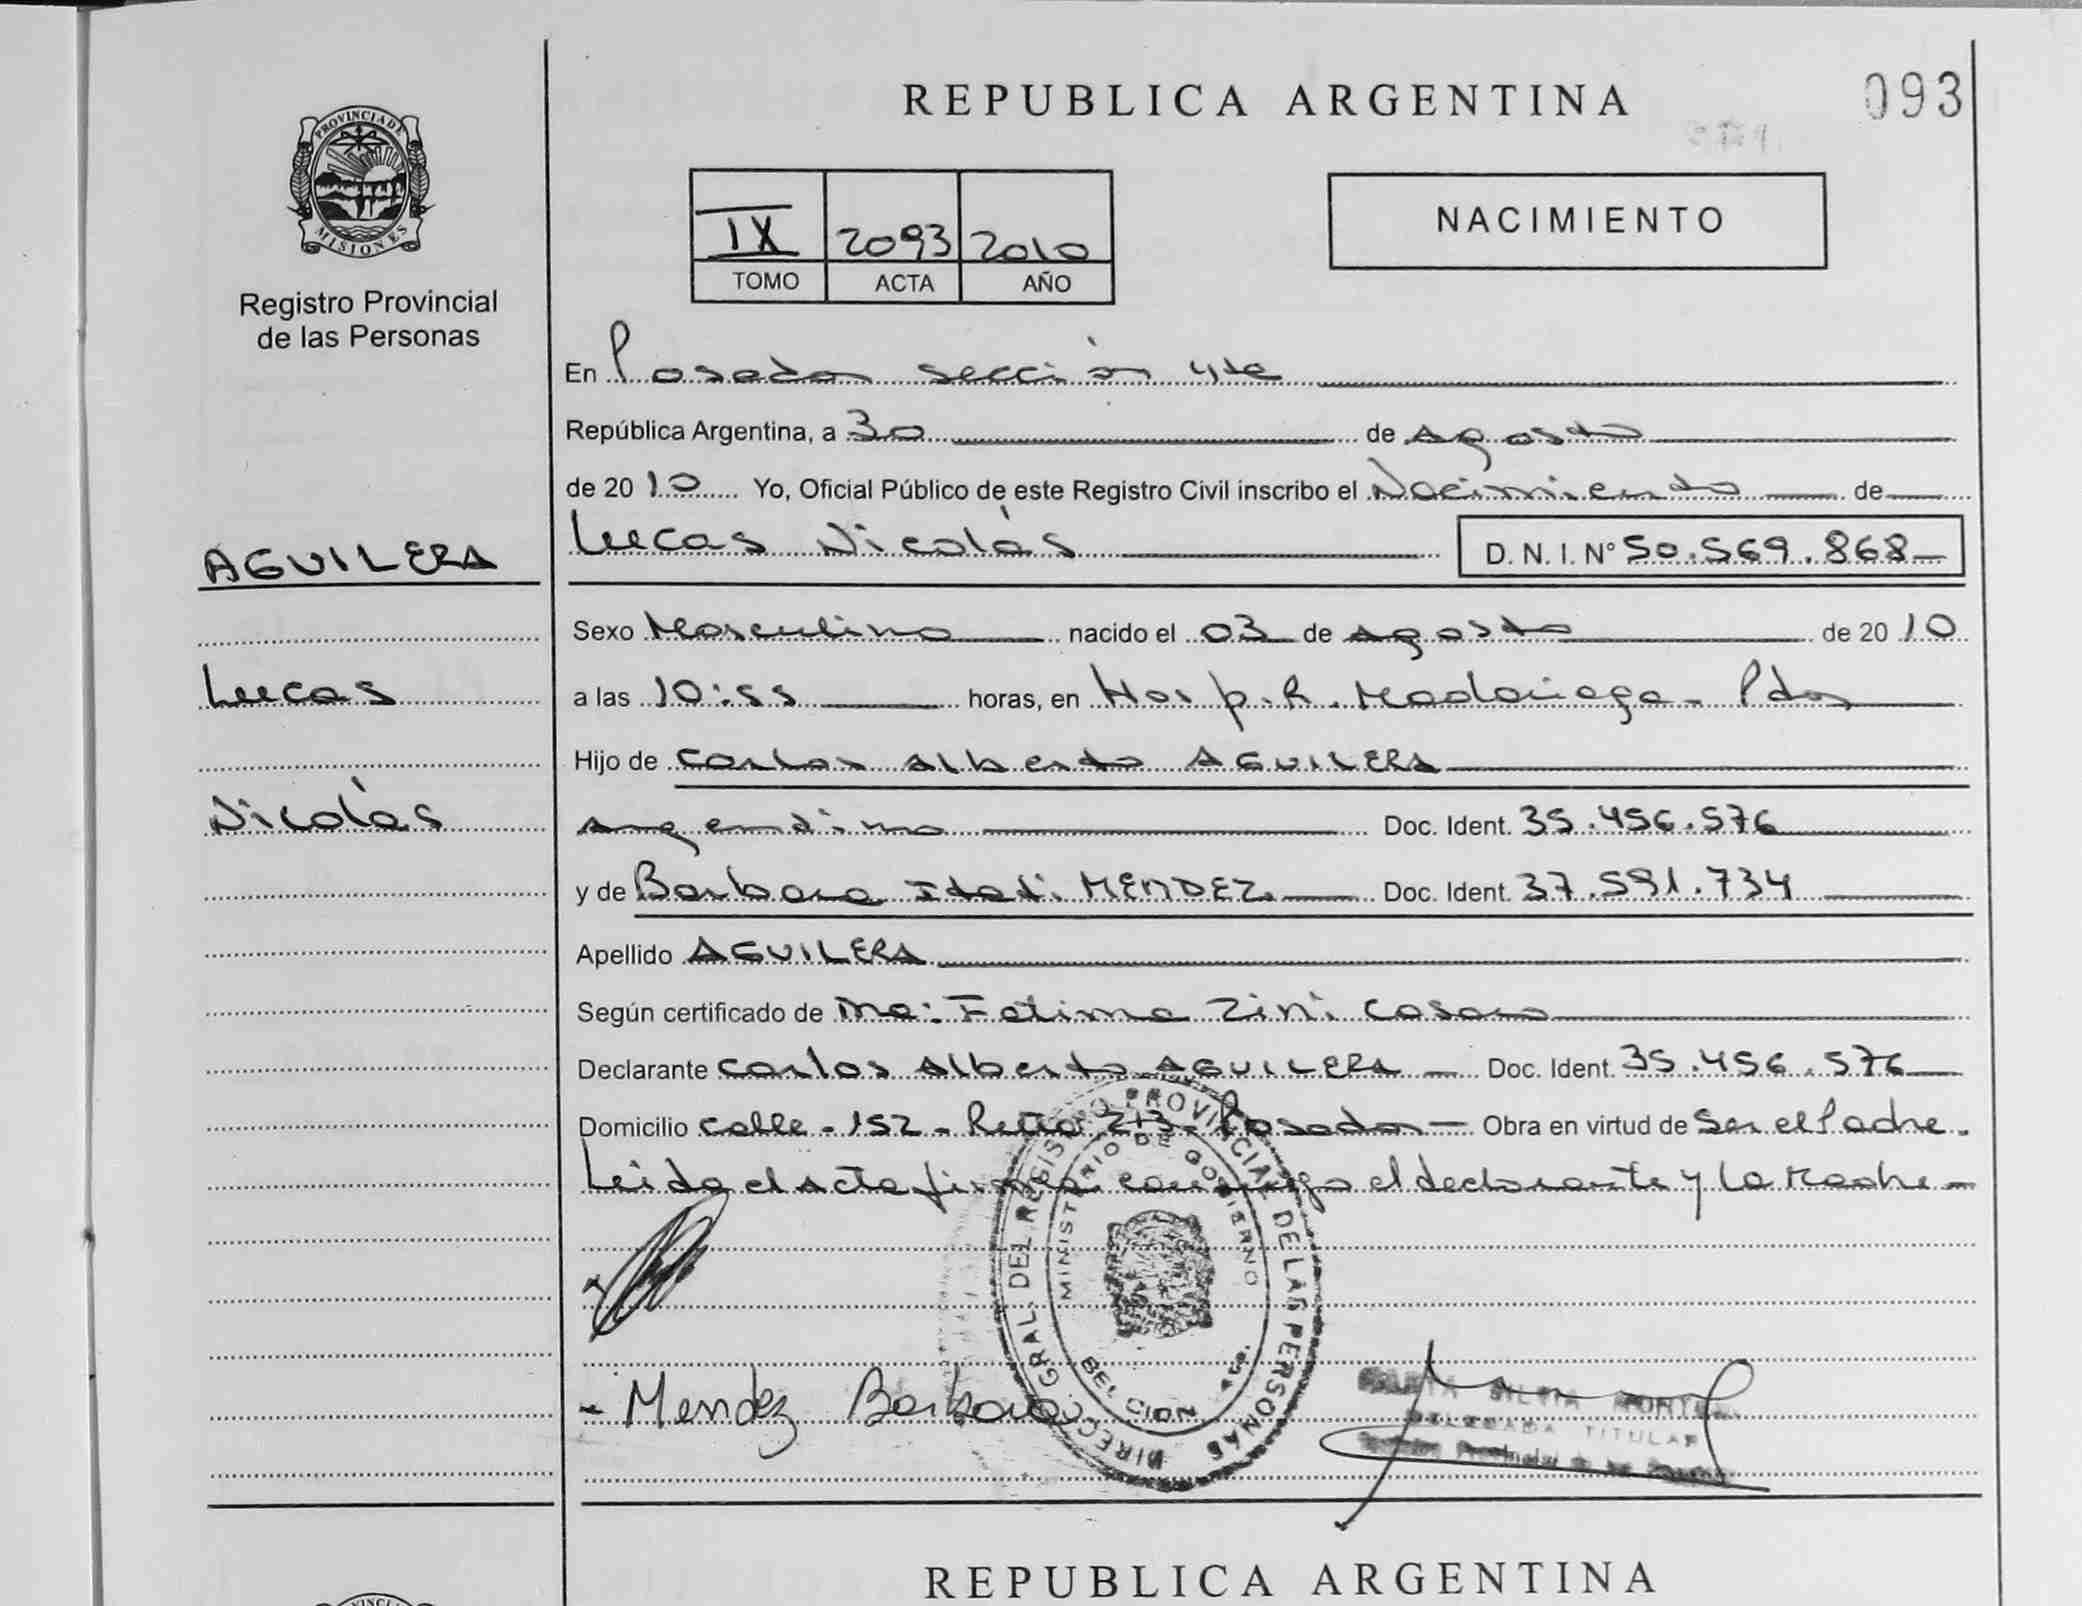 REPUBLICA ARGENTINA
093
PROVINCIA DE
MISIONES
Registro Provincial
de las Personas
IX 2093 2010
TOMO ACTA AÑO
NACIMIENTO
En Posadas sección 4ta
República Argentina, a 30 de Agosto
de 2010 Yo, Oficial Público de este Registro Civil inscribo el Nacimiento de
Lucas Nicolás D. N. I. Nº 50.569.868
AGUILERA
Lucas
Nicolás
Sexo Masculino nacido el 03 de Agosto de 2010
a las 10:55 horas, en Hosp. R. Madariaga - Pdas
Hijo de Carlos Alberto AGUILERA
Argentino Doc. Ident. 35.456.576
y de Barbara Itatí MENDEZ Doc. Ident. 37.591.734
Apellido AGUILERA
Según certificado de Ma: Fatima Zini
Declarante Carlos Alberto AGUILERA Doc. Ident. 35.456.576
Domicilio calle - 152 - Posadas Obra en virtud de Ser el Padre.
Leida el acta firman conmigo el declarante y la Madre
DIRECC. GRAL. DEL REGISTRO PROVINCIAL DE LAS PERSONAS
MINISTERIO DE GOBIERNO
- Mendez Barbara
SILVIA
DELEGADA TITULAR
REPUBLICA ARGENTINA